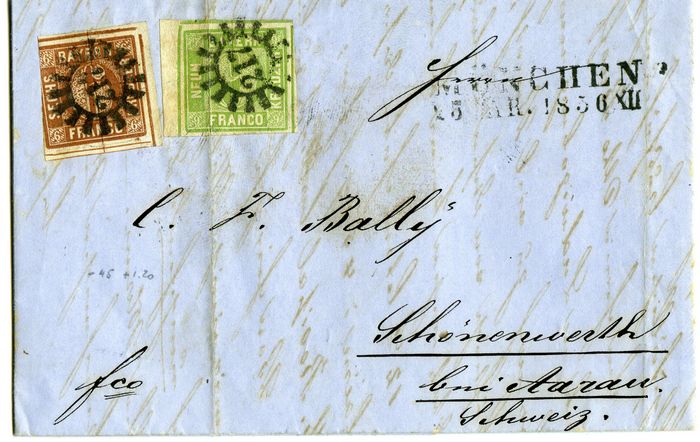 BAYERN
SECHS
FRANCO
6
BAYERN
NEUN
KREUZER
FRANCO
9
217
217
MÜNCHEN
15 MÄR. 1856 XII
C. F. Bally
Schönenwerth
bei Aarau.
Schweiz.
fco
-45 +1.20